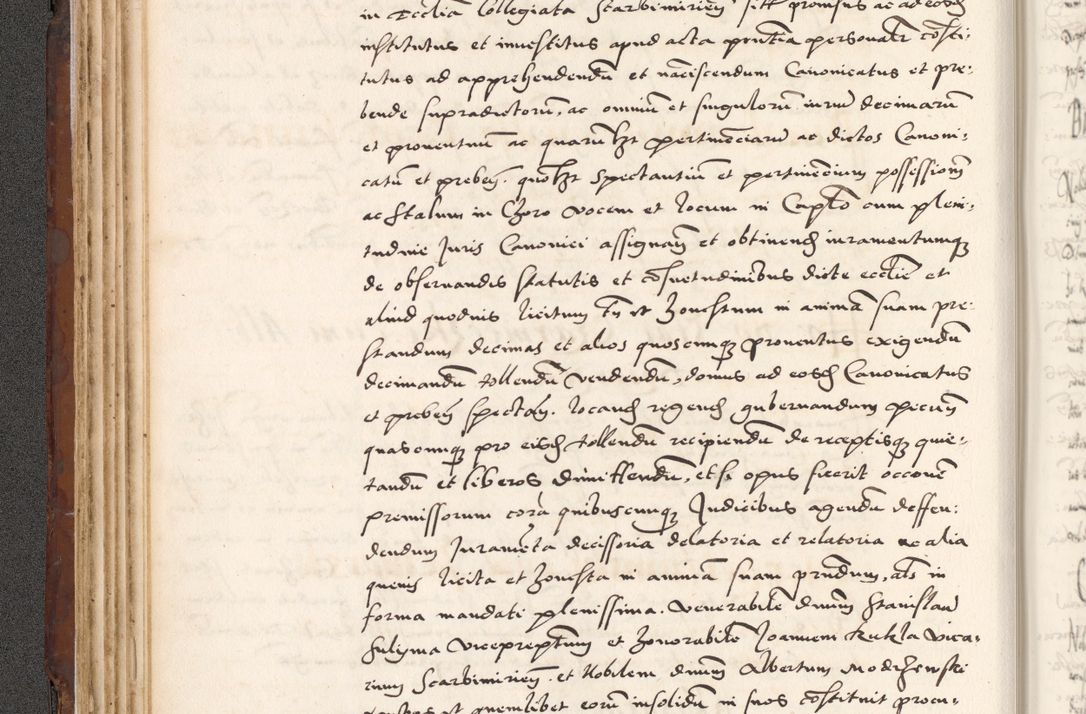 in Ecclia Collegiata Scarbimirien sitt promsus ac ad eosd
institutus et inuestitus apud acta prntia personalr cōsti-
tutus ad apprehendendū et nāciscendum Canonicatus et pre-
bende supradictorū, ac omniū et singulorū iuriū decimarū
et prouentuū ac quarūlbt pertinēciarū ac dictos Canoni-
catū et preben. quolbt spectantiū et pertinēcium possessionē
ac stalum in Choro vocem et locum in Capłto cum pleni-
tudine Juris Canonici assignañ et obtinend iuramentumq
de obseruandis statutis et cōsuetudinibus dicte ecclie et
aliud quoduis licitum tñ et honestum in animā suam pre-
standum decimas et alios quoscunq prouentus exigendū
decimandū tollendū vendendū, domus ad eosd Canonicatus
et preben spectan. locand regend gubernandum pecunm
quascunq pro eisd tollendū recipiendū de receptisq quie-
tandū et liberos dimittendū, et si opus fuerit occōne
premissorum corā quibuscunq Judicibus agendū deffen-
dendum Juramēta decissoria delatoria et relatoria ac alia
queuis licita et honesta in animā suam prndum, als in
forma mandati plenissima. Venerabilē dnum Stanislaū
Sulyma viceprepłtum et honorabilē Joannem Kukla vica-
rium Scarbimirien. et Nobilem dnum Albertum Modrzewski
et quemlibet eorū insolidū in suos cōstituit procu-